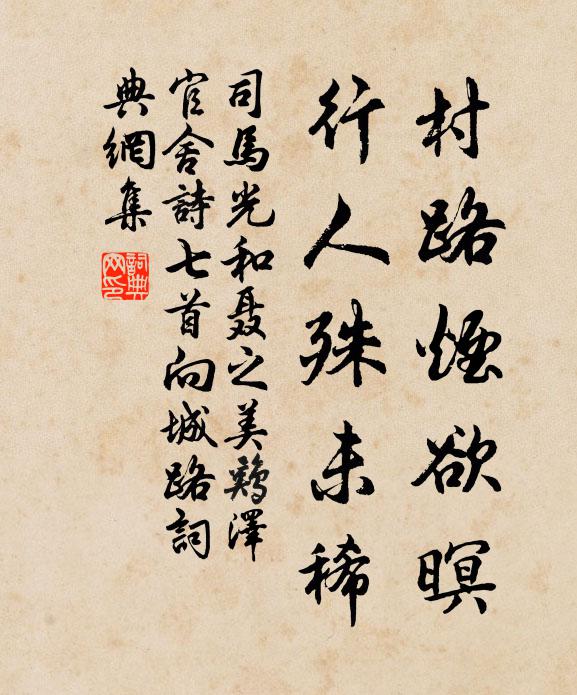 村路煙欲暝
行人殊未稀
司馬光和聂之美鷄澤
官舍詩七首向城路詞
典網集
詞典网印